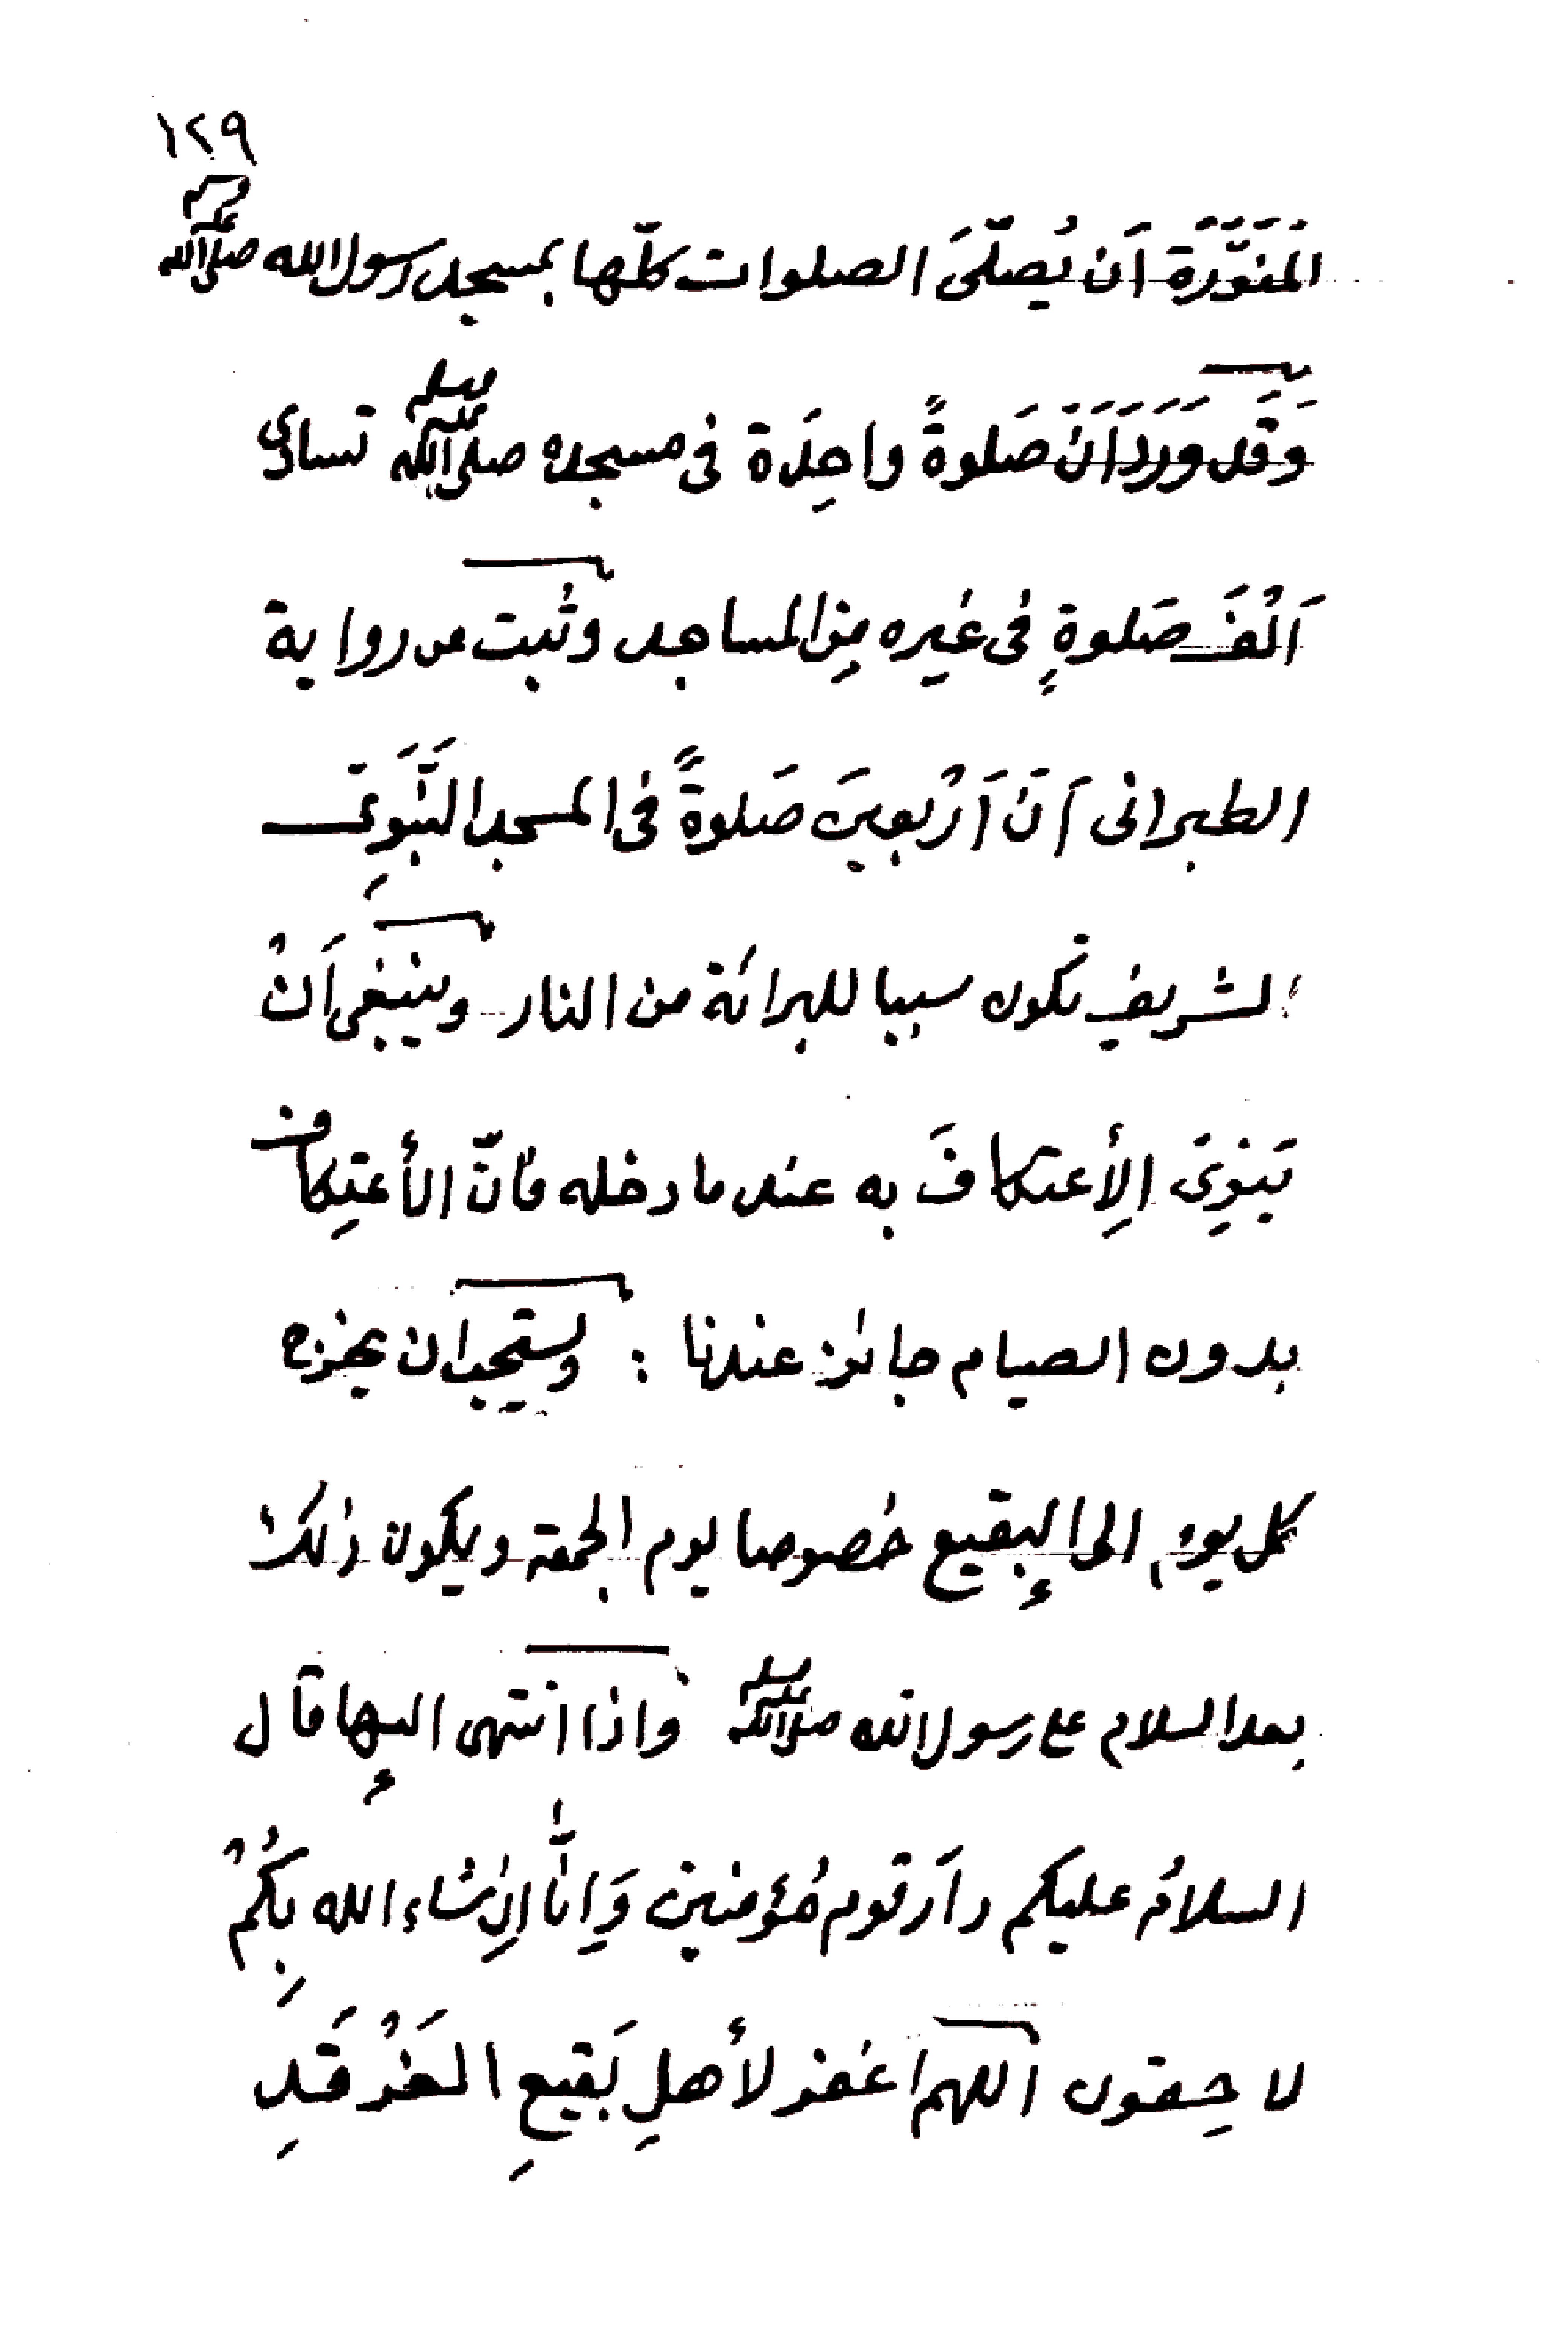 ١٢٩
المَنَوَّرَة اَن يُصلّىَ الصلوات كلّها بمسجد رسول الله صلى الله عليه وسلم
وَقَد وَرَدَ اَنَّ صَلوةً واحِدَة فى مسجده صلى الله عليه وسلم تساوى
اَلْفَ صَلوةٍ فى غيره مِن المساجد وثبت من رواية
الطبرانى اَنَّ اَرْبعِينَ صَلوةً فى المسجد النَّبَوِىّ
الشريف تكون سببا للبرائة من النار وينبغى اَنْ
يَنوِىَ الإِعتكافَ به عند ما دخله فانّ الأعتِكاف
بدون الصيام جائز عندنا : ويستحب ان يخرج
كل يوم الى البقيع خصوصا يوم الجمعة ويكون ذلك
بعد السلام على رسول الله صلى الله عليه وسلم واذا انتهى اليها قال
السلامُ عليكم دَارَ قوم مُؤمنين وَاِنّا اِن شاء الله بِكُمْ
لاحِقون اللهم اغفر لأهلِ بَقيعِ الغَرْقَدِ